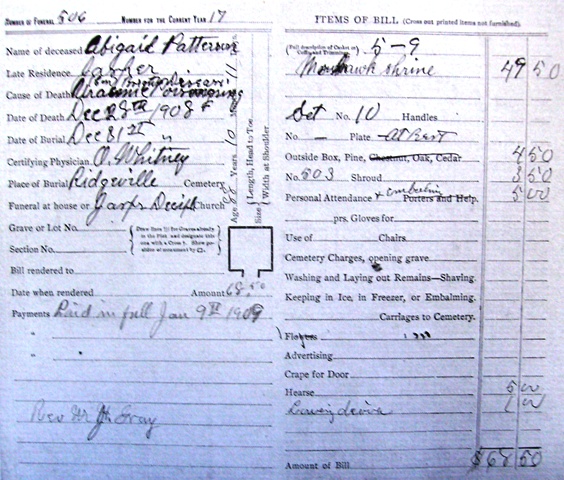 NUMBER OF FUNERAL 506 NUMBER FOR THE CURRENT YEAR 17
Name of deceased Abigail Patterson
Late Residence
Cause of Death Uraemic Poisoning
Date of Death Dec 28th 1908
Date of Burial Dec 31st "
Certifying Physician O. Whitney
Place of Burial Ridgeville Cemetery
Funeral at house or Church
Grave or Lot No.
Section No.
Bill rendered to
Date when rendered Amount 68.50
Payments Paid in full Jan 9th 1909
"
"
Rev Mr Gray
Age Years 10 11
Size { Length, Head to Toe
Width at Shoulder
ITEMS OF BILL (Cross out printed items not furnished).
(Full description of Casket or Coffin and Trimmings) 5-9
Mohawk Shrine 49 50
Set No. 10 Handles
No. — Plate At Rest
Outside Box, Pine, Chestnut, Oak, Cedar 4 50
No. 503 Shroud 3 50
Personal Attendance + embalming Porters and Help. 5 00
prs. Gloves for
Use of Chairs
Cemetery Charges, opening grave
Washing and Laying out Remains—Shaving.
Keeping in Ice, in Freezer, or Embalming.
Carriages to Cemetery.
Flowers
Advertising
Crape for Door
Hearse 5 00
1 00
Amount of Bill $68 50